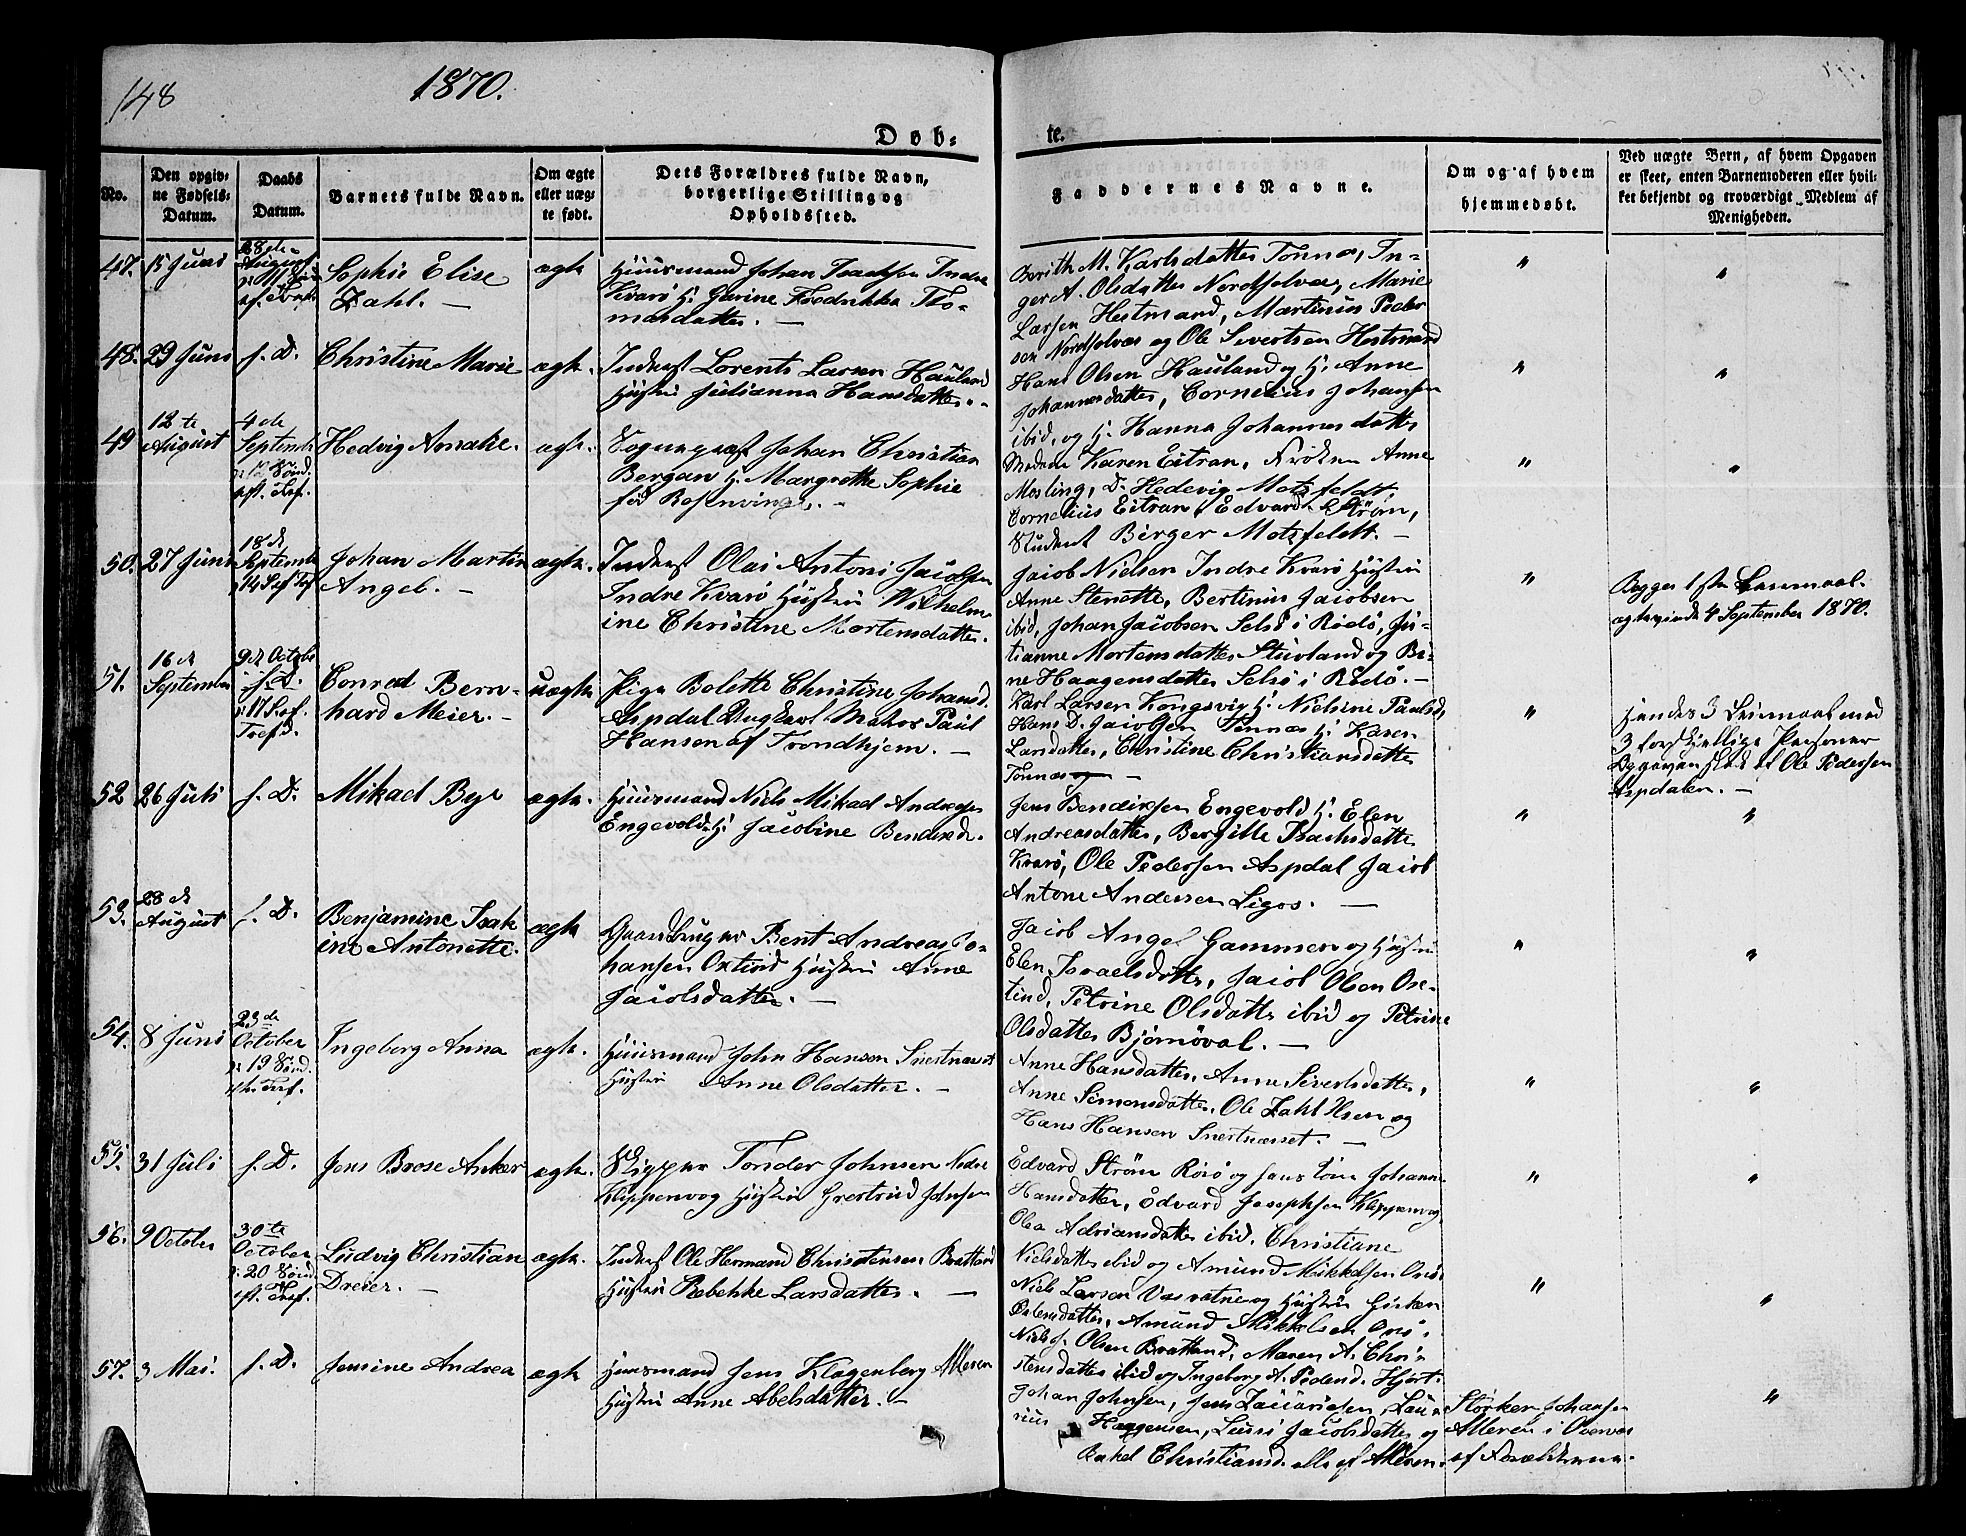 148
1870.
Døb-
te.
No.
Den opgiv-
ne Fødsels-
Datum.
Daabs
Datum.
Barnets fulde Navn.
Om ægte
eller uæg-
te født.
Dets Forældres fulde Navn,
borgerlige Stilling og
Opholdssted.
Faddernes Navne.
Om og af hvem
hjemmedøbt.
Ved uægte Børn, af hvem Opgaven
er skeet, enten Barnemoderen eller hvil-
ket bekjendt og troværdigt Medlem af
Menigheden.
47. 15 Juni
28de
August
Sophie Elise
Zahl. —
ægte
Huusmand Johan Isachsen Indre
Kvarø H. Gurine Fredrikke Tho-
masdatter. —
Berith M. Karlsdatter Tonnæs, In-
ger A. Olsdatter Nordsolvær, Marie
Larsen Hestmand, Martinus Peder
sen Nordsolvær og Ole Sivertsen Hestmand
48. 29 Juni
s. D.
Christine Marie
ægte.
Inderst Lorents Larsen Hauland
Hustru Julianna Hansdatter.
Hans Olsen Hauland og H. Anne
Johannesdatter, Cornelius Johansen
ibid. og H. Hanna Johannesdatter
49
12te
August
4de
September
Hedvig Amalie.
ægte.
Sogneprest Johan Christian
Bergan H. Margrethe Sophie
fød Rosenvinge. —
Madam Karen Eitran, Frøken Anne
Mosling, D. Hedevig Motzfeldt,
Cornelius Eitran, Edvard Strøm,
Student Birger Motzfeldt. —
50. 27 Juni
18de
September
Johan Martin
Angel. —
ægte.
Inderst Olai Antoni Jacobsen
Indre Kvarø Hustru Vilhelm
ine Christine Mortensdatter.
Jacob Nielsen Indre Kvarø Hustru
Anne Stenette, Bertinus Jacobsen
ibid, Johan Jacobsen Selsø i Rødø, Ju-
lianne Mortensdatter Stuvland og Be-
ne Haagensdatter Selsø i Rødø. —
Begges 1ste Leiermaal.
ægteviede 4 September 1870.
51.
16de
September
9de October
s. D.
Conrad Bern-
hard Meier. —
uægte
Pige Bolette Christine Johansd.
Aspdal Ungkarl Matros Paul
Hansen af Trondhjem. —
Karl Larsen Kongsvig H. Nielsine Paulsd.
Hans D. Jacobsen Tonnæs H. Karen
Larsdatter, Christine Christiansdatter
Tonnæs —
Hendes 3 Leiermaal med
3 forskjellige Personer
Opgaven skeet af Ole Pedersen
Aspdalen. —
52 26 Juli
s. D.
Mikael Bye
ægte.
Huusmand Niels Mikael Andresen
Engevold H. Jacobine Bendixdr.
Jens Bendixsen Engevold H. Elen
Andreasdatter, Bergitte Isachsdatter
Kvarø, Ole Pedersen Aspdal Jacob
Antone Andersen Ligos. —
53.
28de
August
s. D.
Benjamine Isak
ine Antonette.
ægte
Gaardbruger Bent Andreas Jo-
hansen Oxtind Hustru Anne
Jacobsdatter. —
Jacob Angel Gammen og Hustru
Elen Israelsdatter, Jacob Olsen Ox-
tind, Petrine Olsdatter ibid og Petrine
Olsdatter Bjørnøval. —
54. 8 Juni
23de
October
19 Sønd.
eft. Tref.
Ingeborg Anna
ægte.
Huusmand John Hansen Snertnæsset
Hustru Anne Olsdatter. —
Anne Hansdatter, Anne Sivertsdatter,
Anne Simonsdatter, Ole Zahl Ilsen og
Hans Hansen Snertnæsset. —
55. 31 Juli
s. D.
Jens Brose Anker
ægte.
Skipper Tonder Johnsen Nedre
Klippenvog Hustru Grestrud Johnsen
Edvard Strøm Rosø og Hans Søn Johanne
Hansdatter, Edvard Josephsen Klippenvog
Olea Adriansdatter ibid. Christiane
Nielsdatter ibid og Amund Mikkelsen Onø.
56. 9 October
30te
October
20 Sønd.
eft. Tref.
Ludvig Christian
Dreier. —
ægte.
Inderst Ole Hermand Christensen Bratland
Hustru Rebekke Larsdatter. —
Niels Larsen Vasvatne og Hustru Girken
Ostensdatter, Amund Mikkelsen Onø.
Niels J. Olsen Bratland, Maren A. Chri-
stensdatter ibid og Ingeborg A. Pedersd. Hjort
57. 3 Mai.
s. D.
Jensine Andrea
ægte
Huusmand Jens Klogenberg Alteren
Hustru Anne Abelsdatter. —
Johan Johnsen, Jens Zacariasen, Lau-
rius Haagensen, Lussi Jacobsdatter og
Rakel Christiansd. alle af Alteren.
Størker Johansen
Alteren
af Forældrene.